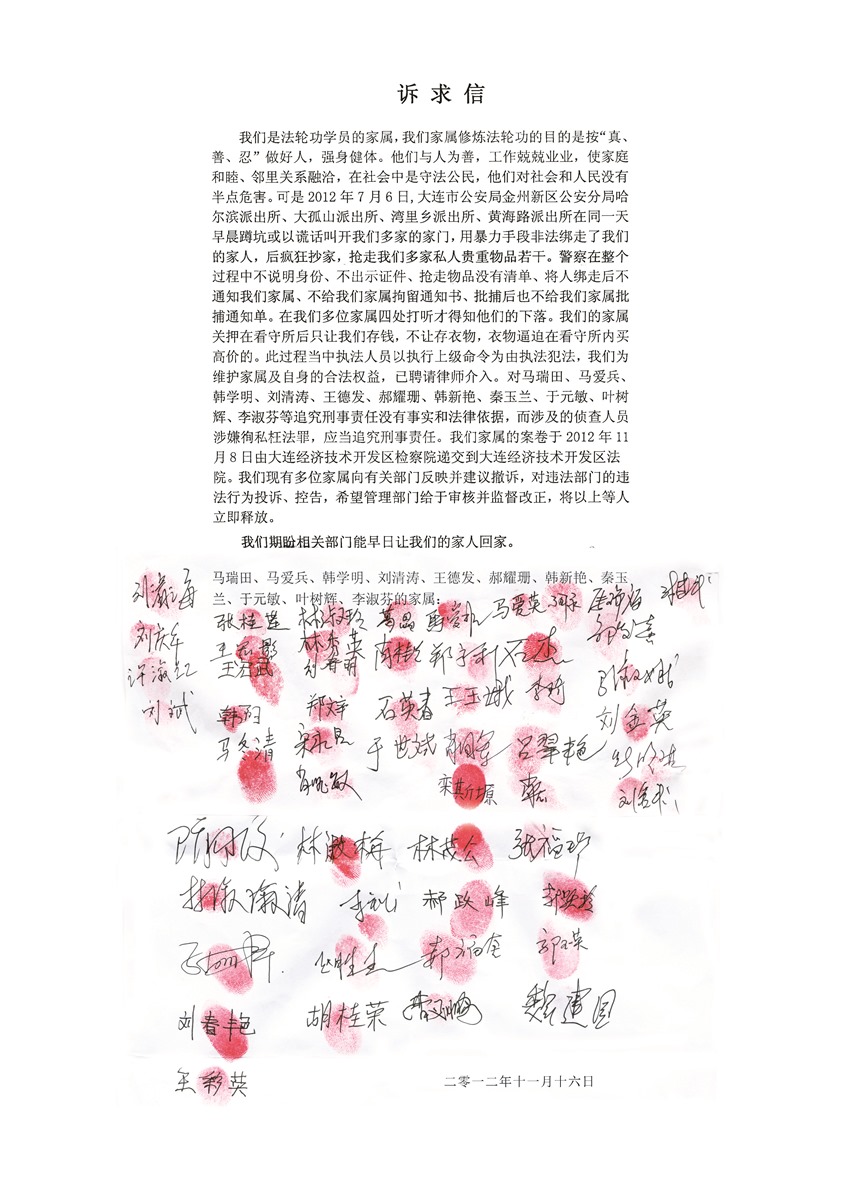 诉 求 信
我们是法轮功学员的家属，我们家属修炼法轮功的目的是按“真、
善、忍”做好人，强身健体。他们与人为善，工作兢兢业业，使家庭
和睦、邻里关系融洽，在社会中是守法公民，他们对社会和人民没有
半点危害。可是 2012 年 7 月 6 日，大连市公安局金州新区公安分局哈
尔滨派出所、大孤山派出所、湾里乡派出所、黄海路派出所在同一天
早晨蹲坑或以谎话叫开我们多家的家门，用暴力手段非法绑走了我们
的家人，后疯狂抄家，抢走我们多家私人贵重物品若干。警察在整个
过程中不说明身份、不出示证件、抢走物品没有清单、将人绑走后不
通知我们家属、不给我们家属拘留通知书、批捕后也不给我们家属批
捕通知单。在我们多位家属四处打听才得知他们的下落。我们的家属
关押在看守所后只让我们存钱，不让存衣物，衣物逼迫在看守所内买
高价的。此过程当中执法人员以执行上级命令为由执法犯法，我们为
维护家属及自身的合法权益，已聘请律师介入。对马瑞田、马爱兵、
韩学明、刘清涛、王德发、郝耀珊、韩新艳、秦玉兰、于元敏、叶树
辉、李淑芬等追究刑事责任没有事实和法律依据，而涉及的侦查人员
涉嫌徇私枉法罪，应当追究刑事责任。我们家属的案卷于 2012 年 11
月 8 日由大连经济技术开发区检察院递交到大连经济技术开发区法
院。我们现有多位家属向有关部门反映并建议撤诉，对违法部门的违
法行为投诉、控告，希望管理部门给于审核并监督改正，将以上等人
立即释放。
我们期盼相关部门能早日让我们的家人回家。
马瑞田、马爱兵、韩学明、刘清涛、王德发、郝耀珊、韩新艳、秦玉
兰、于元敏、叶树辉、李淑芬的家属：
张桂莲 林淑玲 马爱英
刘庆年 林秀英
刘斌 郑文 石英春 王玉娥 刘金英
马冬清 于世斌 吕翠艳
栾斯塬
林淑梅 林茂公 张福珍
郝政峰
郭玉英
刘春艳 胡桂荣 魏建国
王彩英
二零一二年十一月十六日